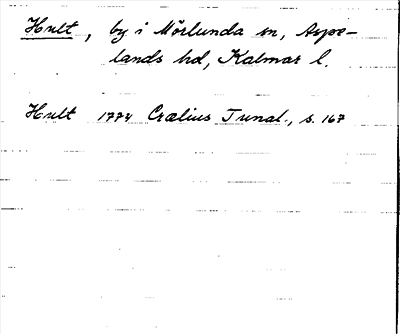 Hult, by i Mörlunda sn, Aspe-
lands hd, Kalmar l.
Hult 1774 Crælius Tunal., s. 167